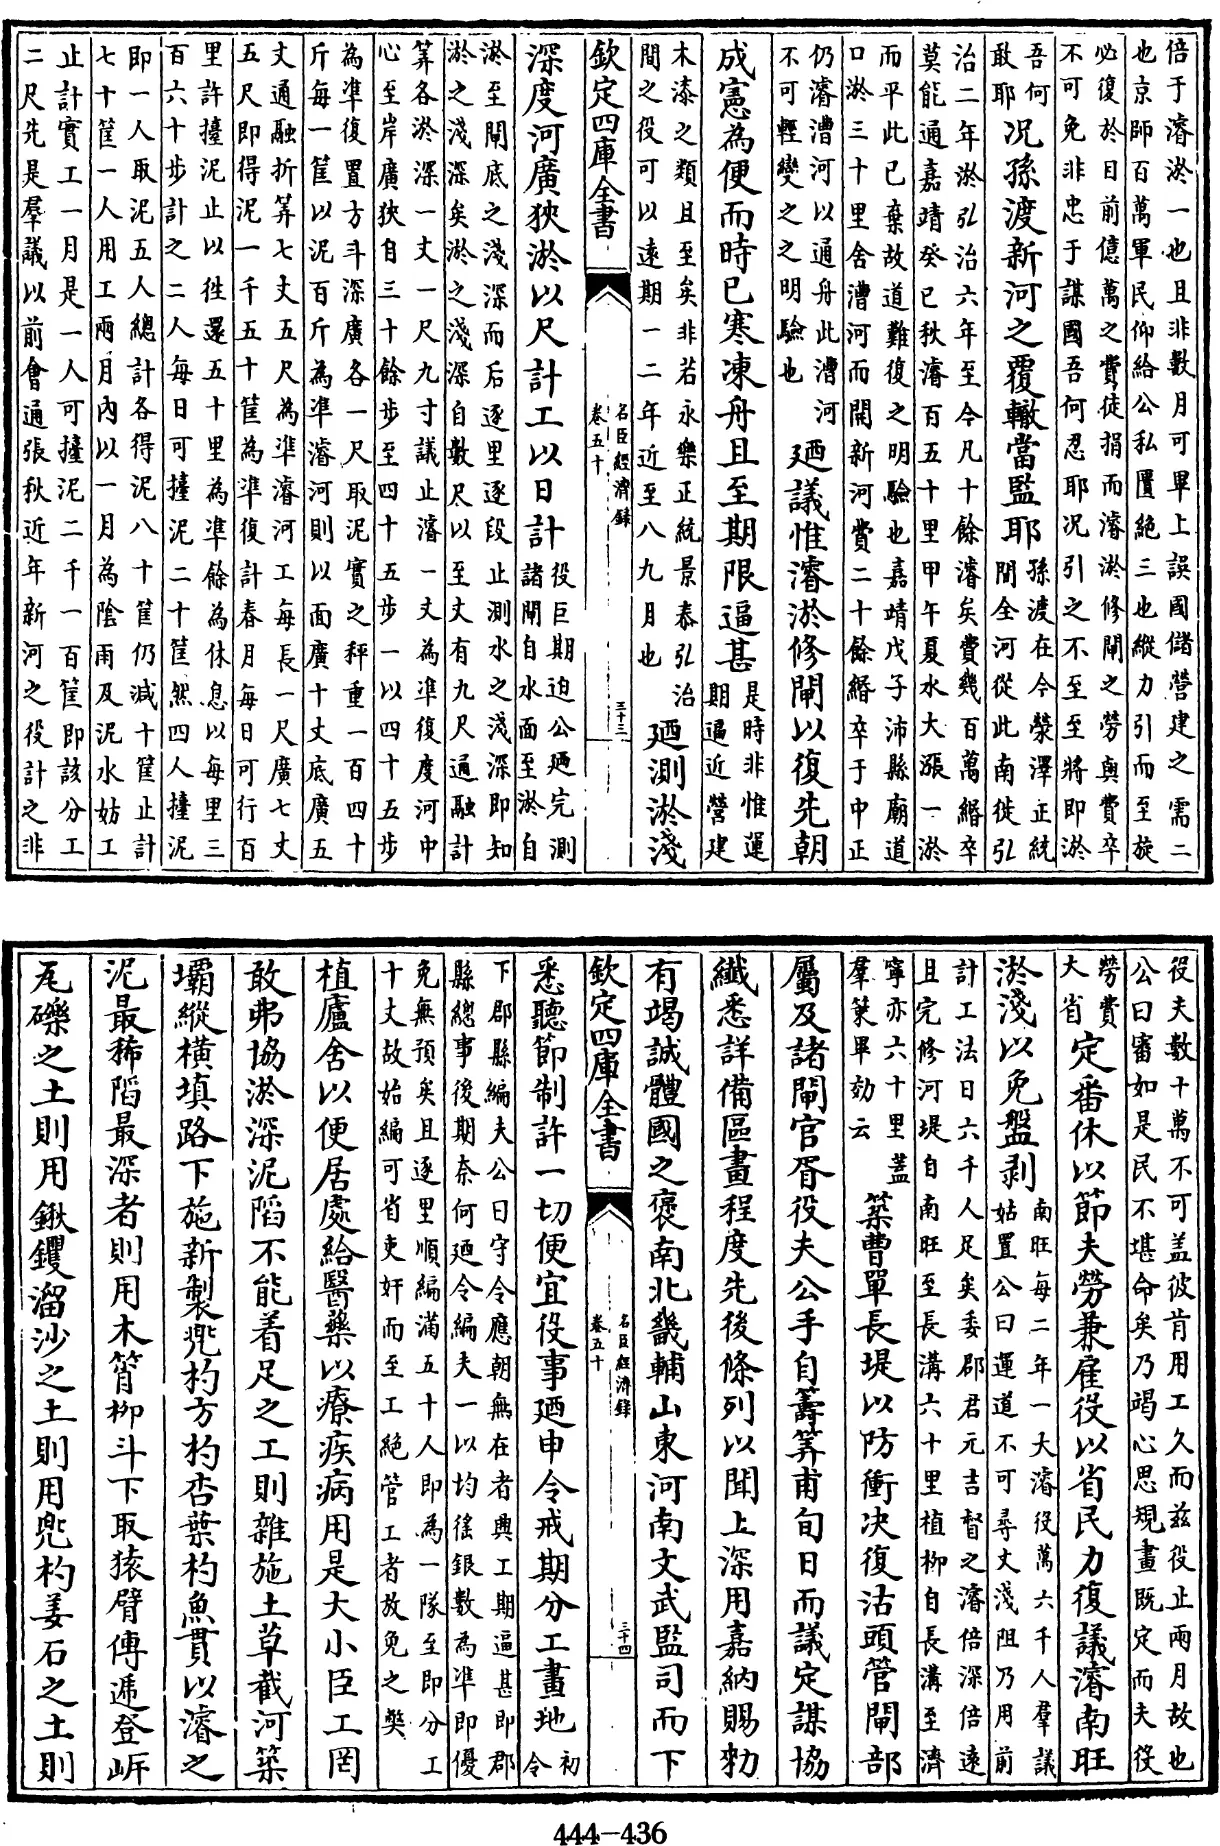 倍于濬淤一也且非數月可畢上誤國儲營建之需二
也京師百萬軍民仰給公私匱絕三也縱力引而至旋
必復於目前億萬之費徒捐而濬淤修閘之勞與費卒
不可免非忠于謀國吾何忍耶况引之不至至將即淤
吾何
敢耶
况孫渡新河之覆轍當監耶
孫渡在今滎澤正統
間全河從此南徙弘
治二年淤弘治六年至今凡十餘濬矣費幾百萬緡卒
莫能通嘉靖癸巳秋濬百五十里甲午夏水大漲一淤
而平此已棄故道難復之明驗也嘉靖戊子沛縣廟道
口淤三十里舍漕河而開新河費二十餘緡卒于中正
仍濬漕河以通舟此漕河
不可輕變之之明驗也
廼議惟濬淤修閘以復先朝
成憲為便而時已寒凍舟且至期限逼甚
是時非惟運
期逼近營建
木漆之類且至矣非若永樂正統景泰弘治
間之役可以遠期一二年近至八九月也
廼測淤淺
欽定四庫全書
名臣經濟録
卷五十
三十三
深度河廣狹淤以尺計工以日計
役巨期迫公廼完測
諸閘自水面至淤自
淤至閘底之淺深而后逐里逐段止測水之淺深即知
淤之淺深矣淤之淺深自數尺以至丈有九尺通融計
筭各淤深一丈一尺九寸議止濬一丈為準復度河中
心至岸廣狹自三十餘步至四十五步一以四十五步
為準復置方斗深廣各一尺取泥實之秤重一百四十
斤每一筐以泥百斤為準濬河則以面廣十丈底廣五
丈通融折筭七丈五尺為準濬河工每長一尺廣七丈
五尺即得泥一千五十筐為準復計春月每日可行百
里許擡泥止以徃還五十里為準餘為休息以每里三
百六十步計之二人每日可擡泥二十筐然四人擡泥
即一人取泥五人總計各得泥八十筐仍減十筐止計
七十筐一人用工兩月內以一月為陰雨及泥水妨工
止計實工一月是一人可擡泥二千一百筐即該分工
二尺先是羣議以前會通張秋近年新河之役計之非
役夫數十萬不可蓋彼肯用工久而兹役止兩月故也
公曰審如是民不堪命矣乃竭心思規畫既定而夫役
勞費
大省
定番休以節夫勞兼雇役以省民力復議濬南旺
淤淺以免盤剥
南旺每二年一大濬役萬六千人羣議
姑置公曰運道不可尋丈淺阻乃用前
計工法日六千人足矣委郡君元吉督之濬倍深倍遠
且完修河堤自南旺至長溝六十里植柳自長溝至濟
寧亦六十里蓋
羣策畢効云
築曹單長堤以防衝决復沽頭管閘部
屬及諸閘官胥役夫公手自籌筭甫旬日而議定謀協
纎悉詳備區畫程度先後條列以聞上深用嘉納賜勑
有竭誠體國之褒南北畿輔山東河南文武監司而下
欽定四庫全書
名臣經濟録
卷五十
三十四
悉聽節制許一切便宜役事廼申令戒期分工畫地
初
令
下郡縣編夫公曰守令應朝無在者興工期逼甚即郡
縣總事後期奈何廼令編夫一以均徭銀數為準即優
免無預矣且逐里順編滿五十人即為一隊至即分工
十丈故始編可省吏奸而至工絕管工者放免之獘
植廬舍以便居處給醫藥以療疾病用是大小臣工罔
敢弗協淤深泥䧟不能着足之工則雜施土草截河築
壩縱横填路下施新製兠杓方杓杏葉杓魚貫以濬之
泥最稀䧟最深者則用木筲柳斗下取猿臂傳遞登㟁
瓦礫之土則用鍬钁溜沙之土則用兠杓姜石之土則
444-436